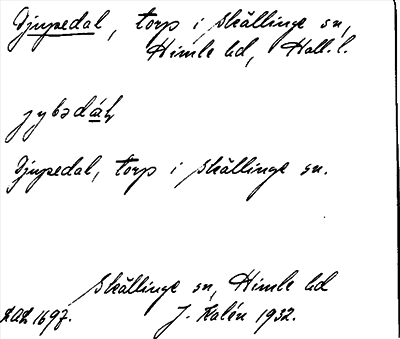 Djupedal, torp i Skällinge sn,
Himle hd, Hall. l.
jybədáḷ
Djupedal, torp i Skällinge sn.
Skällinge sn, Himle hd
1697. J. Kalén 1932.